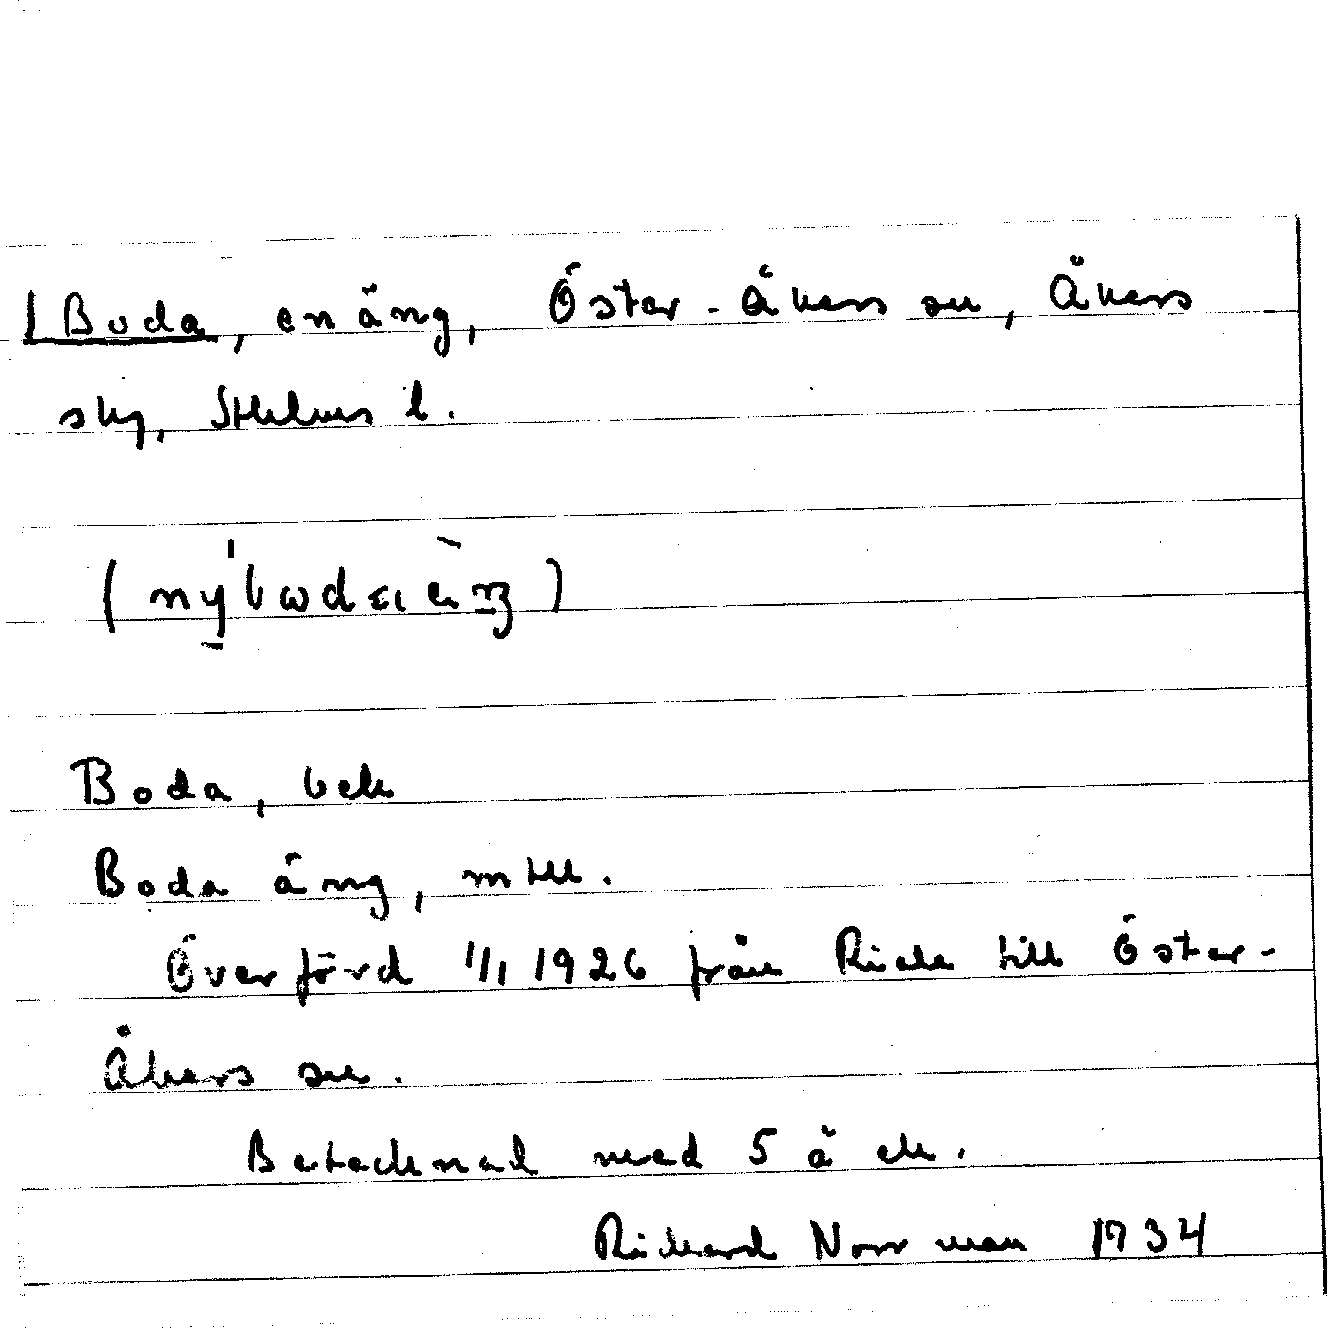 Boda, en äng, Öster-Åkers sn, Åkers
skg, Sthlms l.
Boda, bek
Boda äng, mtll.
Överförd 1/1 1926 från Riala till Öster-
Åkers sn.
Betecknad med 5 å ek.
Richard Norrman 1934